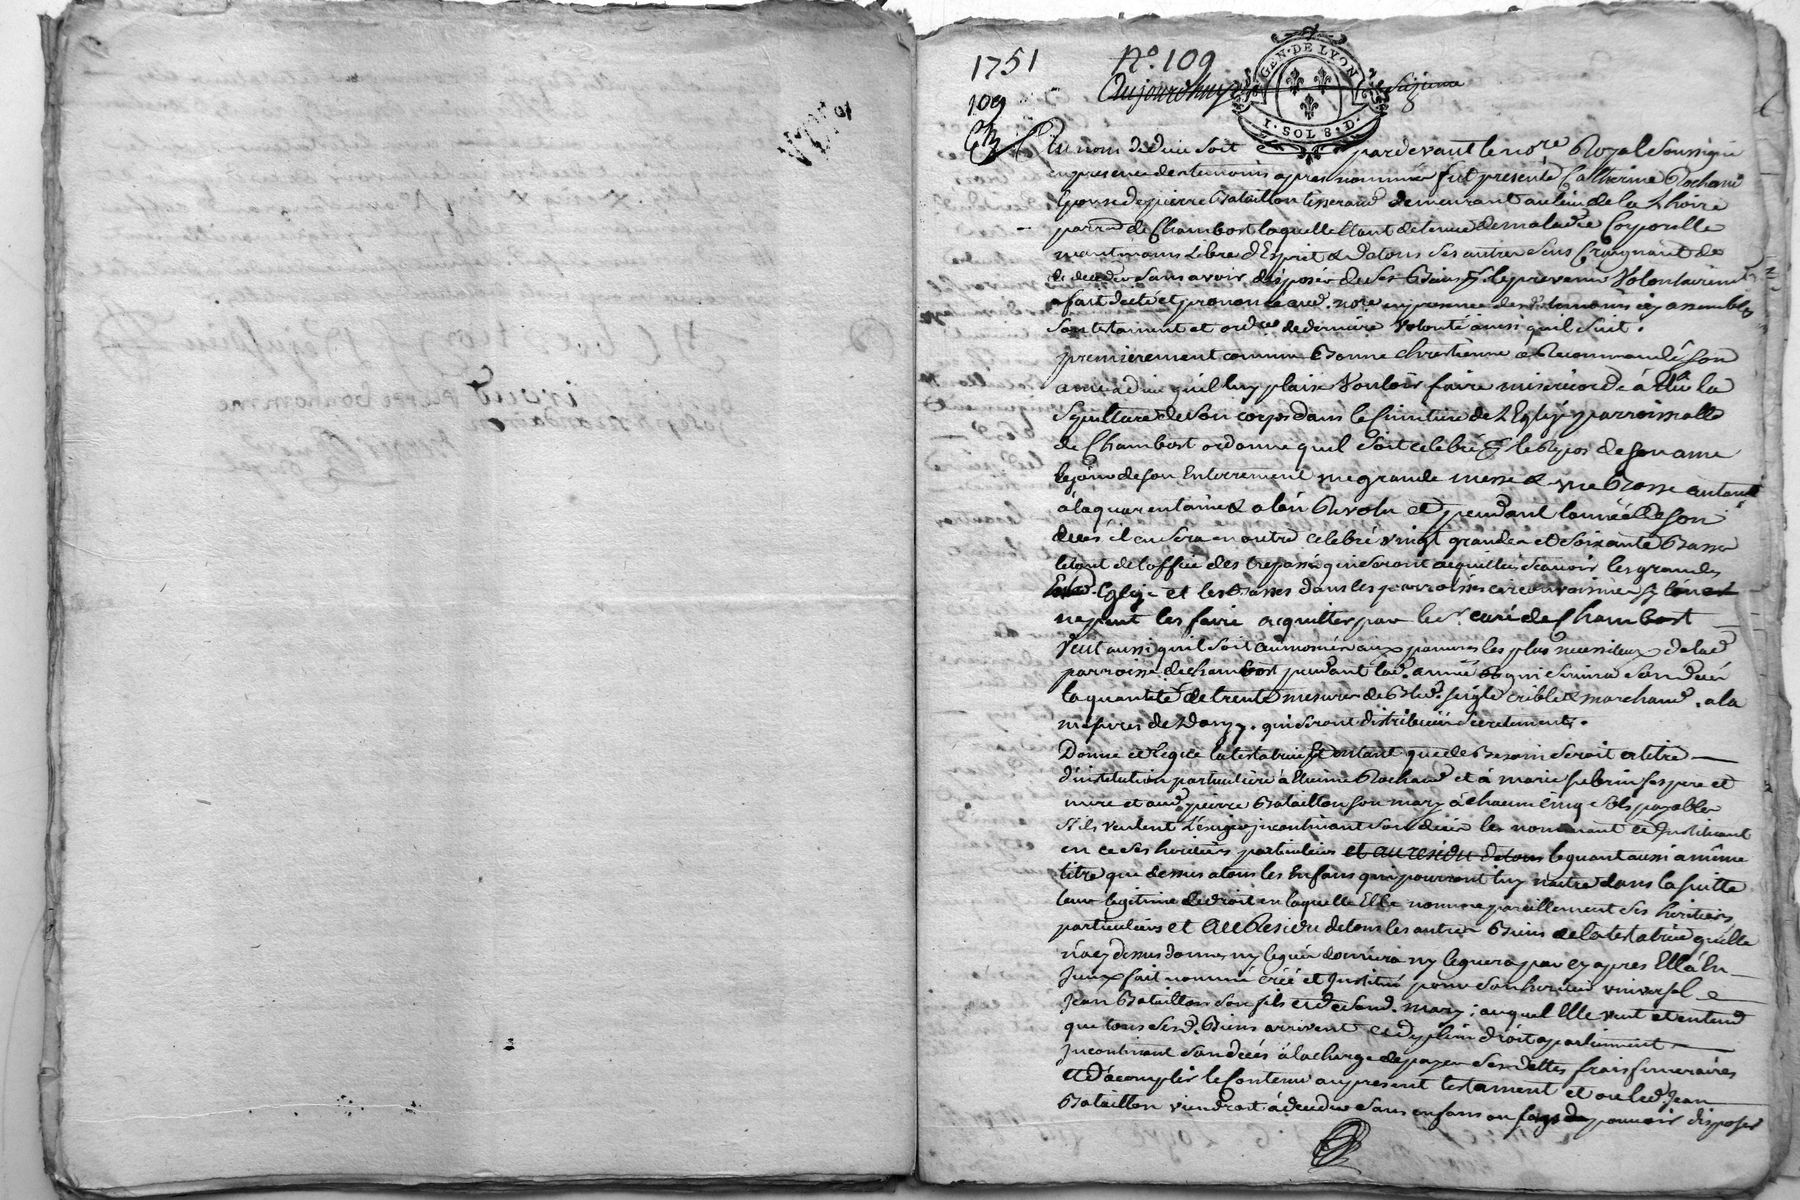 1751
N.º 109
109
Aujourdhuy
GEN. DE LYON
I. SOL 8. D.
Au nom de dieu soit pardevant le nore Royal soussigné
en presence des temoins apres nommés fut presente Catherine Rochard
Epouse de pierre Bataillon tisserand demeurant au lieu de la
parr.e de Chambost laquelle etant detenue de maladie Corporelle
neantmoins Libre d'Esprit & de tous ses autres sens Craignant de
de deceder sans avoir disposé de ses Biens pr le prevenir Volontairemt
a fait dicté et prononcé aud. nore en presence desd. temoins icy assemblés
son testament et ordce de derniere Volonté ainsi quil suit.
premierement comme Bonne chrestienne a Recommandé son
ame a dieu quil luy plaise Vouloir faire misericorde a elû la
sepulture de son corps dans le Cimetiere de L'Eglise parroissialle
de Chambost ordonne quil soit celebré pr le Repos de son ame
le jour de son Enterrement une grande messe & une Basse autant
à la quarentaine & a lan Revolu et pendant lannée de son
deces il en sera en outre celebré vingt grandes et soixante Basses
le tout de l'office des trepassés qui seront acquittées scavoir les grandes
Eglize et les Basses dans les parroisses circonvoisines sy lon
ne peut les faire acquitter par le sr. curé de Chambost
Veut aussi quil soit aumoné aux pauvres les plus necessiteux de lad
parroisse de chambost pendant lad. année qui suivra son deces
la quantité de trente mesures de Bled seigle crible & marchand. a la
mesures de Donzy. qui seront distribuées secretement.
Donne et legue la testatrice et entant que de Besoin seroit a titre
d'institution particuliere à Etienne Rochard et à marie ses pere et
mere et aud. pierre Bataillon son mary à chacun cinq sols payables
s'ils veulent L'exiger incontinant son deces les nommant et Instituant
en ce ses heritiers particuliers et au residu de tous leguant aussi a même
titre que dessus a tous les Enfans qui pourront luy naitre dans la suitte
leur legitime de droit en laquelle Elle nomme pareillement ses heritiers
particuliers et AU Residu de tous les autres Biens de la testatrice quelle
n'a cy dessus donnés ny legués donnera ny leguera par cy apres Ell'à En
Iceux fait nommé créé et Institué pour son heritier universel
Jean Bataillon son fils et de sond. mary; auquel Elle veut et entend
que tous sesd. Biens arrivent et de plein droit apartiennent
Incontinant son deces à la charge de payer ses dettes frais funeraires
et d'acomplir le Contenu au present testament et ou led. Jean
Bataillon viendroit à deceder sans enfans ou sans pouvoir disposer